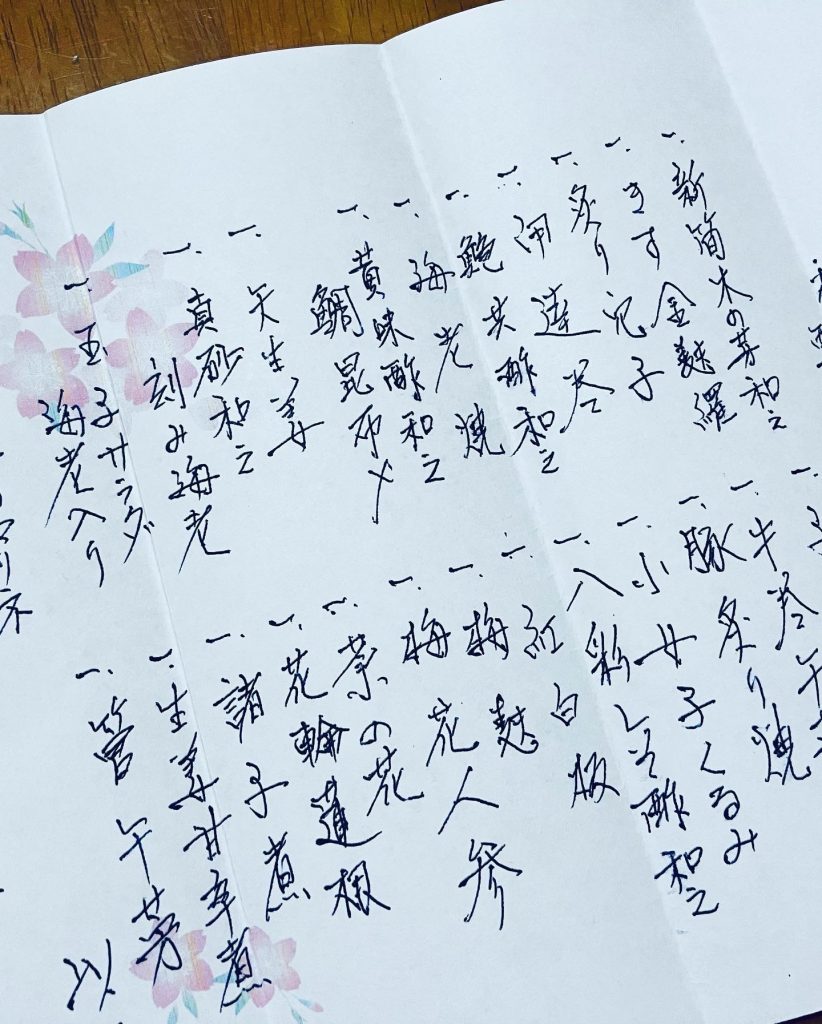 一、新筍木の芽和え
一、きす金麩羅
一、炙り兄子
一、開蓮巻
一、鮑共酢和え
一、海老焼
一、黄味酢和え
鯛昆布〆
一、矢生姜
一、真砂和え
刻み海老
一、玉子サラダ
海老入り
一、牛巻牛
一、豚炙り焼
一、小女子くるみ
一、八彩しそ酢和え
一、紅白板
一、梅麩
一、梅花人参
一、菜の花
一、花輪蓮根
一、諸子煮
一、生姜甘辛煮
一、管牛蒡
以